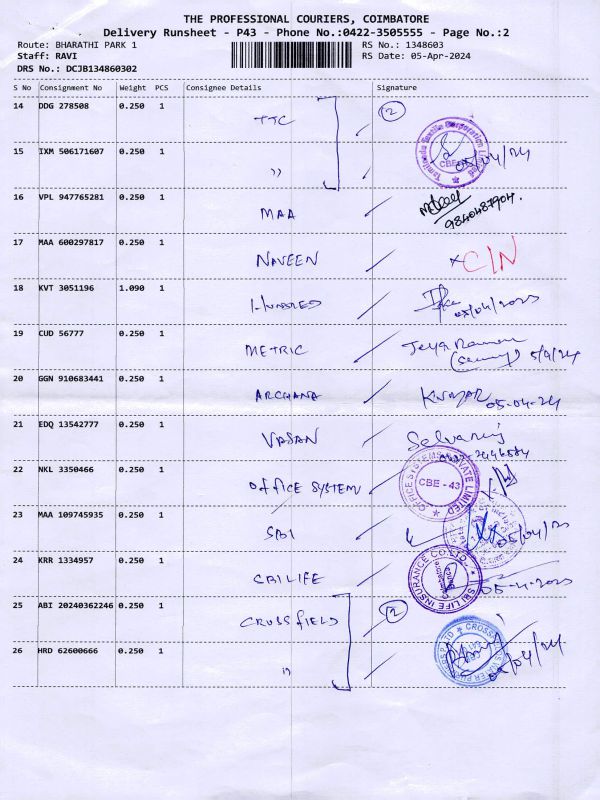 THE PROFESSIONAL COURIERS, COIMBATORE
Delivery Runsheet - P43 - Phone No.:0422-3505555 - Page No.:2
Route: BHARATHI PARK 1 RS No.: 1348603
Staff: RAVI RS Date: 05-Apr-2024
DRS No.: DCJB134860302
S No Consignment No Weight PCS Consignee Details Signature
14 DDG 278508 0.250 1 TTC 2
Tamilnadu Textile Corporation Limited CBE 05/04/24
15 IXM 506171607 0.250 1 "
16 VPL 947765281 0.250 1 MAA 9840487904.
17 MAA 600297817 0.250 1 NAVEEN x CIN
18 KVT 3051196 1.090 1
19 CUD 56777 0.250 1 METRIC Jeya Raman
5/4/24
20 GGN 910683441 0.250 1 ARCHANA KUMAR 05-04-24
21 EDQ 13542777 0.250 1 VASAN Selvaraj
22 NKL 3350466 0.250 1 OFFICE SYSTEM OFFICE SYSTEMS PRIVATE LIMITED CBE - 43
23 MAA 109745935 0.250 1 SBI
24 KRR 1334957 0.250 1 SBI LIFE SBI LIFE INSURANCE CO. LTD.
25 ABI 20240362246 0.250 1 CROSSFIELD 2
26 HRD 62600666 0.250 1 "